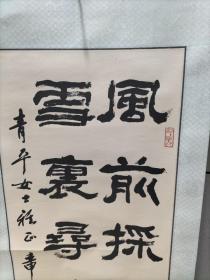 風前採
雪裏尋
青平女士雅正